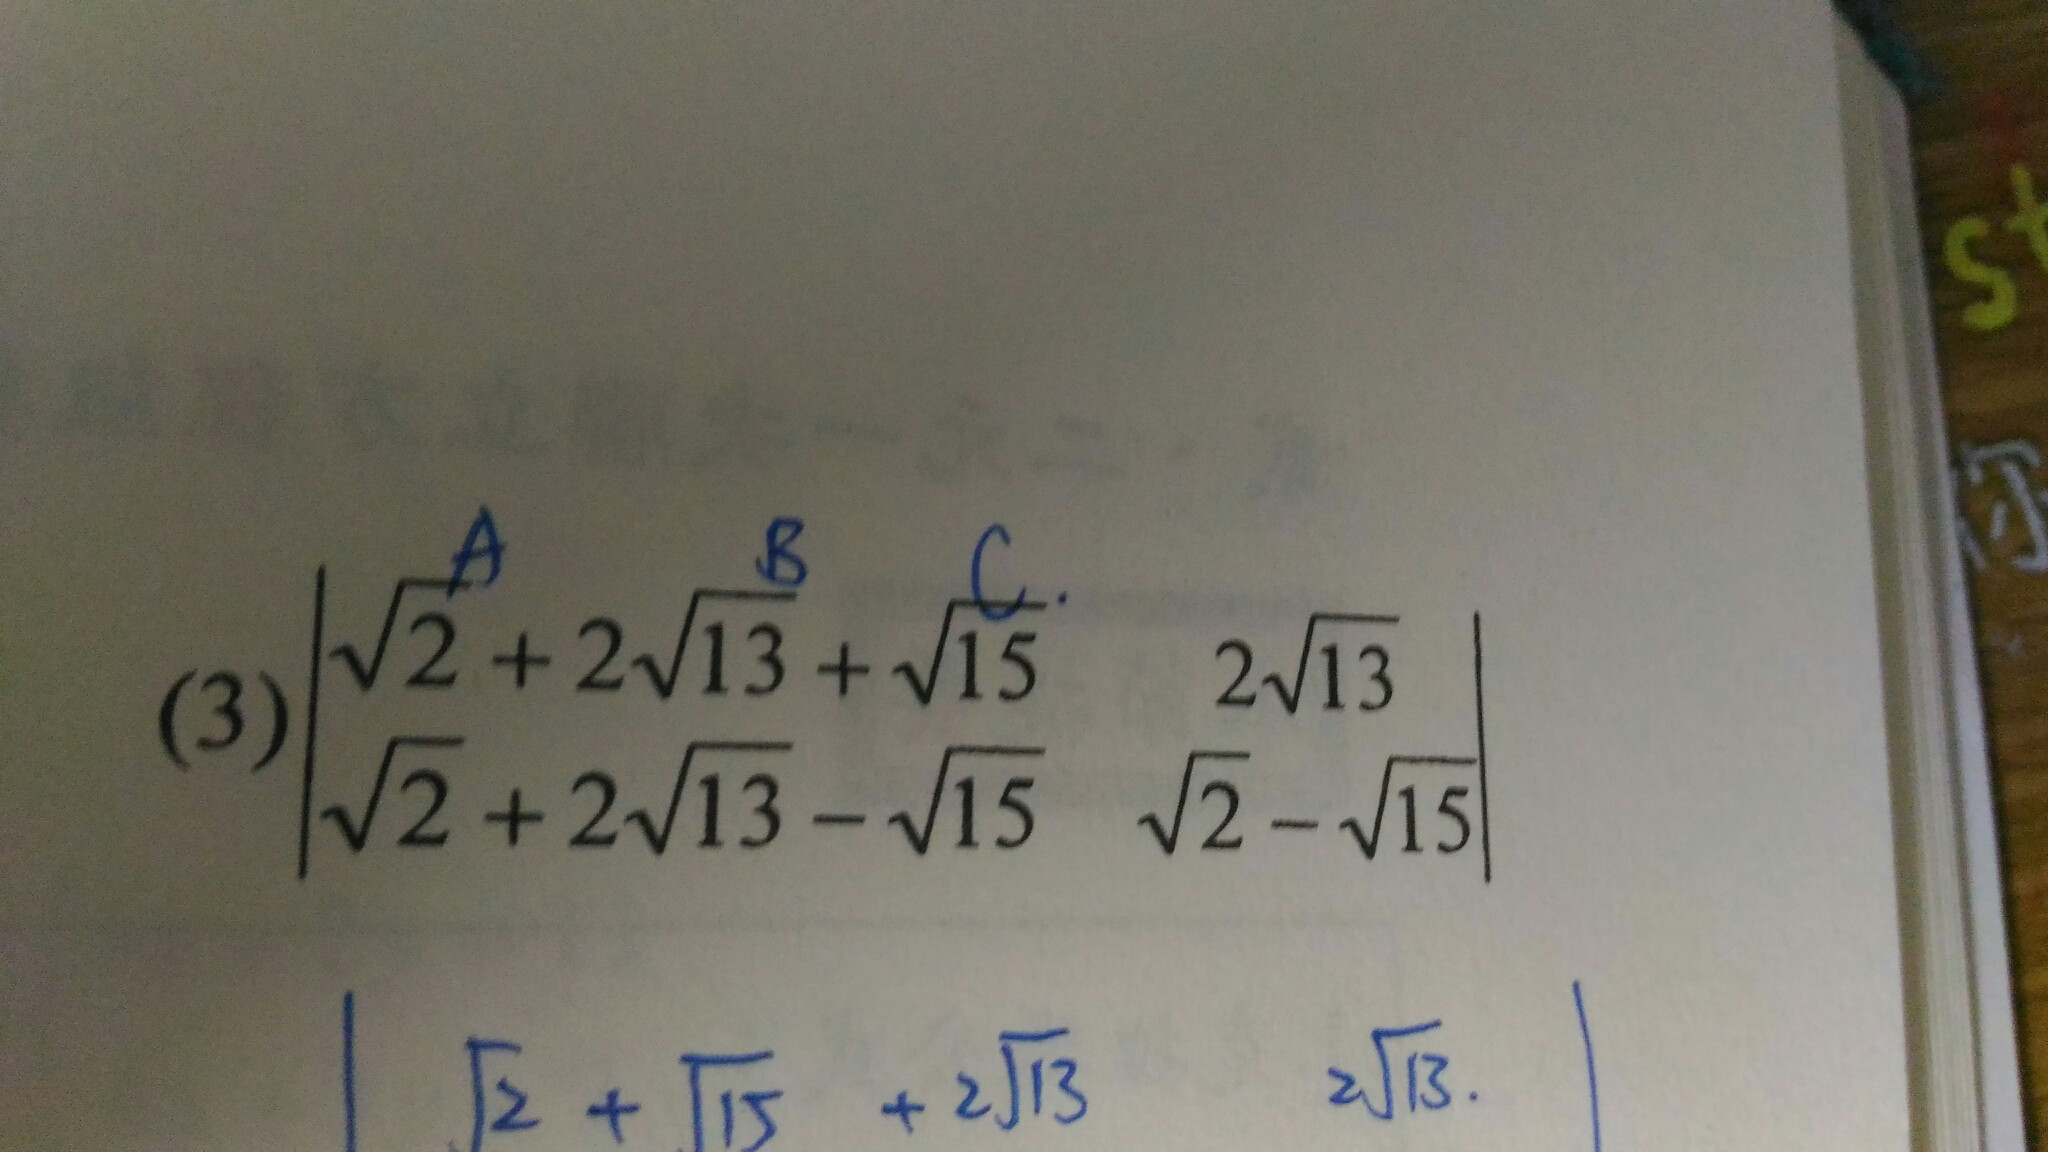 A B C.
(3) | √2 + 2√13 + √15 2√13 |
| √2 + 2√13 − √15 √2 − √15 |
| √2 + √15 + 2√13 2√13. |
st